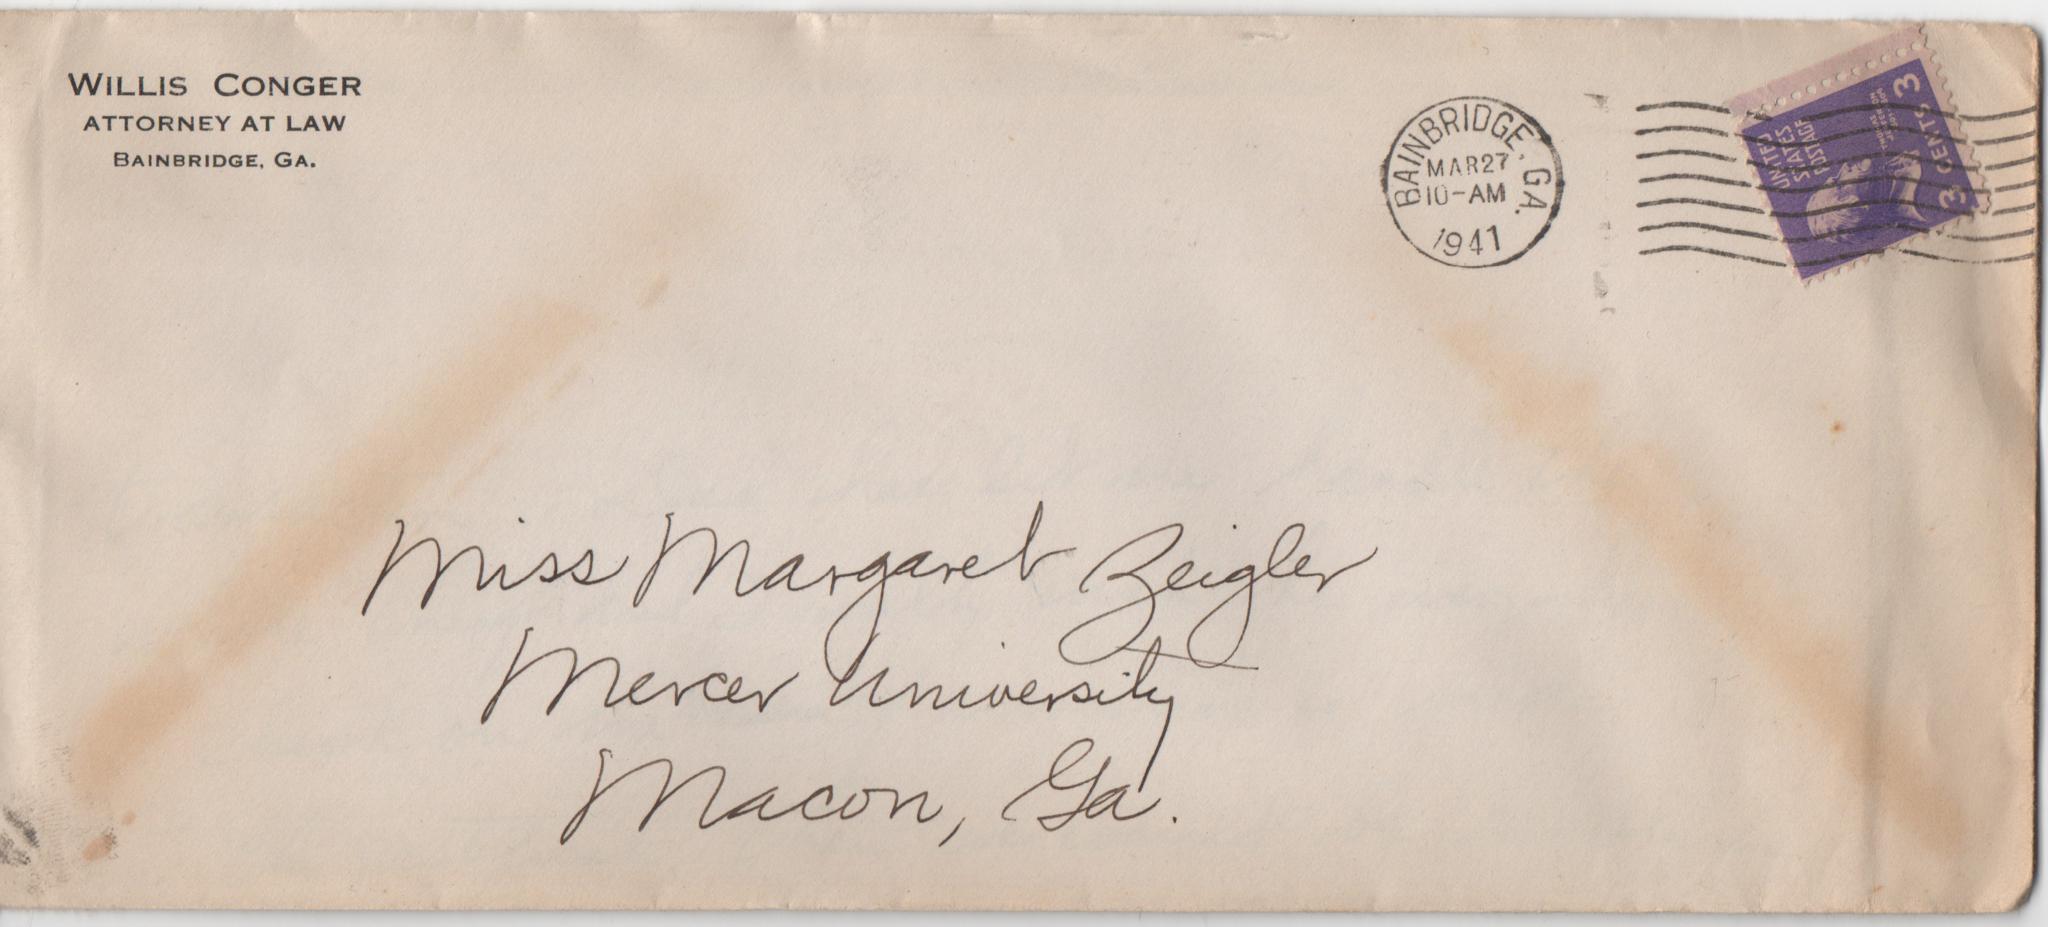 WILLIS CONGER
ATTORNEY AT LAW
BAINBRIDGE, GA.
BAINBRIDGE, GA.
MAR 27
10-AM
1941
UNITED
STATES
POSTAGE
3 CENTS 3
Miss Margaret Zeigler
Mercer University
Macon, Ga.